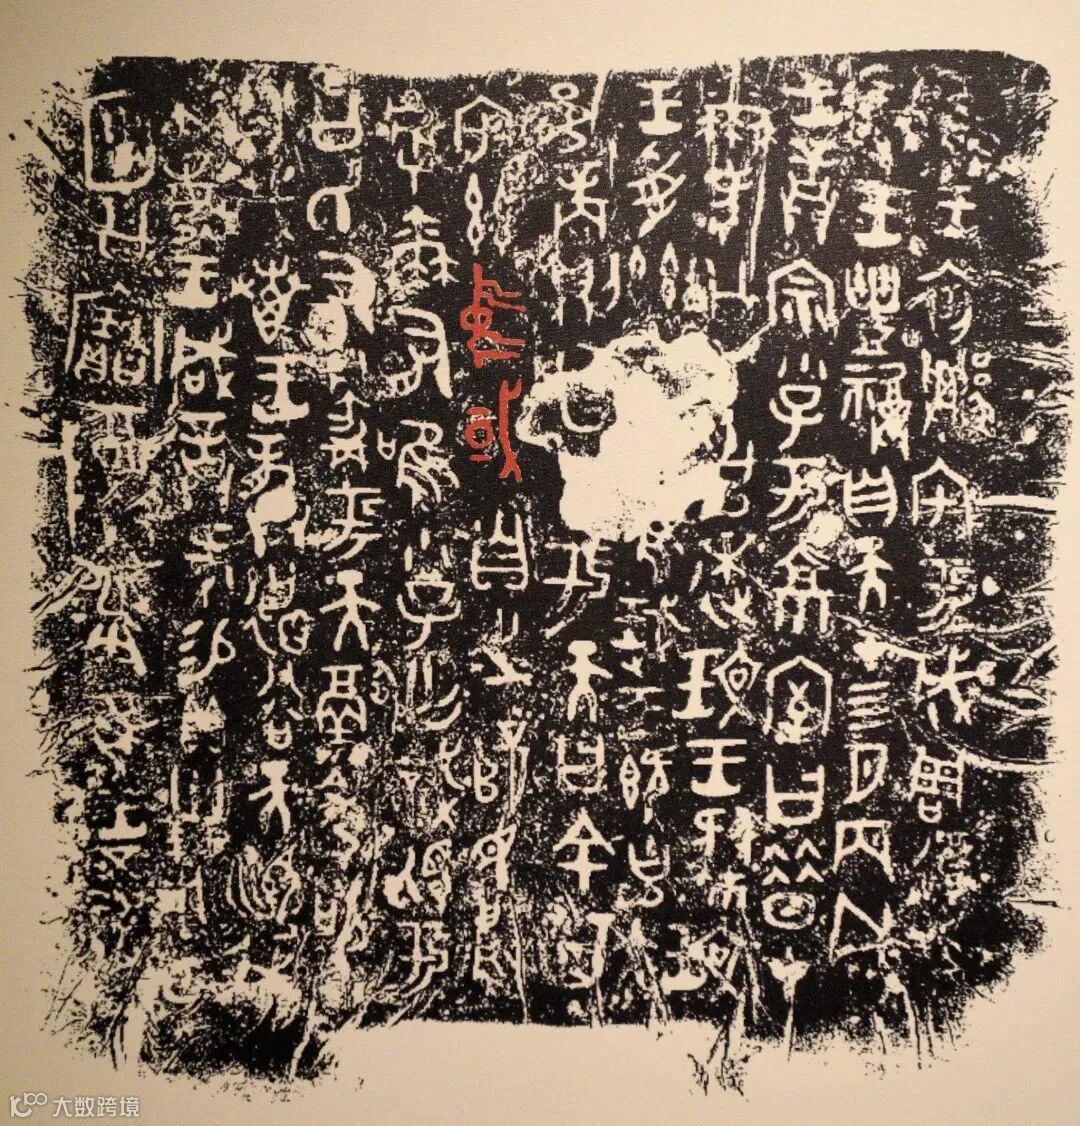 隹王初遷宅于成周復禀
珷王豊祼自天才四月丙戌
王誥宗小子于京室曰昔才
爾考公氏克逨玟王肆玟
王受茲隹珷王既克大
邑商則廷告于天曰余其
宅茲中或自之乂民烏
虖爾有唯小子亡識視于
公氏有爵于天徹令苟
享哉叀王龏德谷天順我
不敏王咸誥何易貝卅朋用乍
圂公寶尊彝隹王五祀
大数跨境